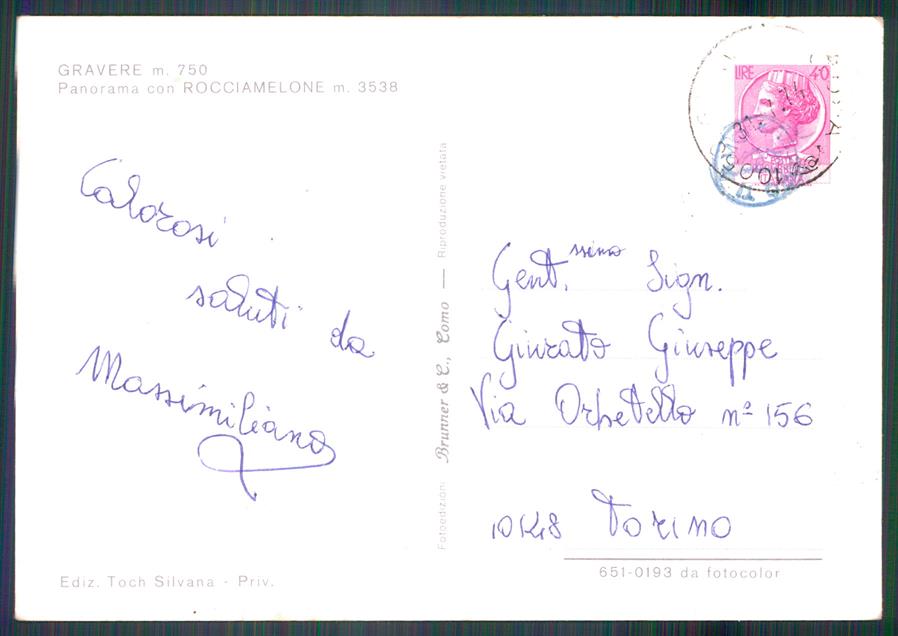 GRAVERE m. 750
Panorama con ROCCIAMELONE m. 3538
Calorosi
saluti da
Massimiliano
Ediz. Toch Silvana - Priv.
Fotoedizioni Brunner & C., Como — Riproduzione vietata
LIRE 40
Gent.ssimo Sign.
Giurato Giuseppe
Via Orbetello nº 156
10148 Torino
651-0193 da fotocolor